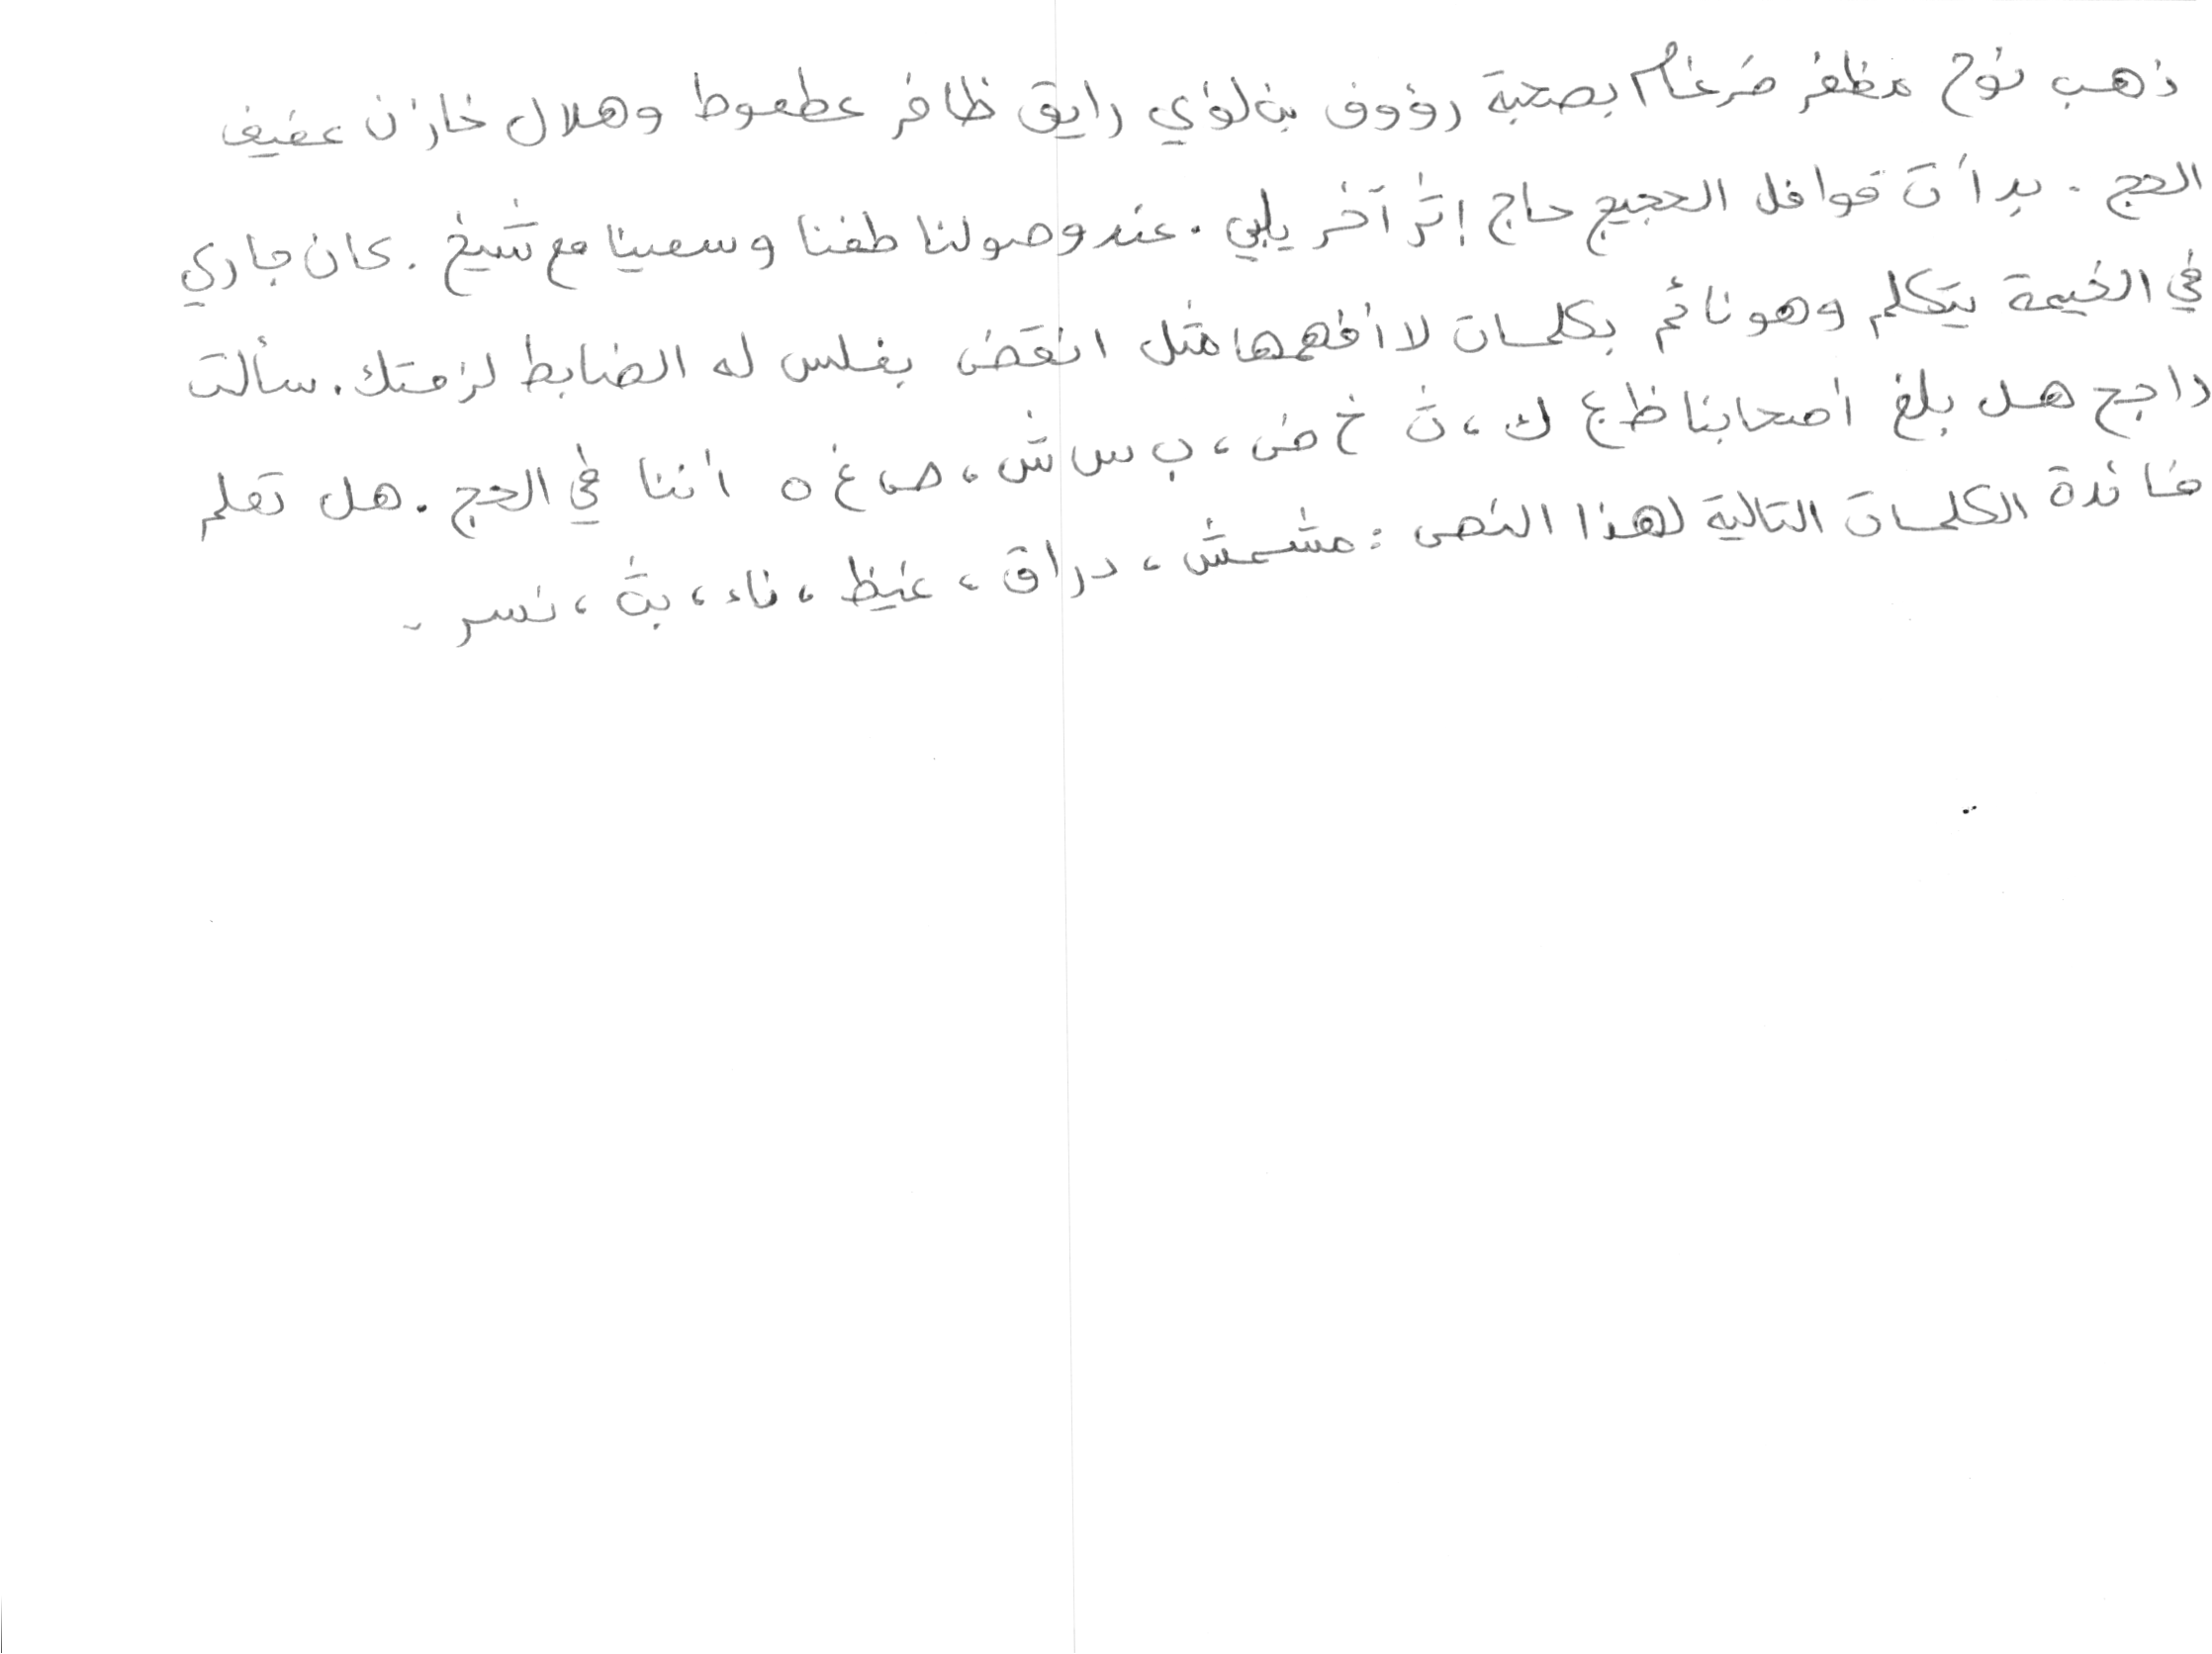 ذهب نوح مظفر ضرغام بصحبة رؤوف بن لؤي رايق ظافر عطعوط وهلال خازن عفيف
الحج . بدأت قوافل الحجيج حاج إثر آخر يلبي . عند وصولنا طفنا وسعينا مع شيخ . كان جاري
في الخيمة يتكلم وهو نائم بكلمات لا أفهمها مثل انقض بغلس له الضابط لزمتك . سألت
راجح هل بلغ أصحابنا ظ ع ك ، ث خ ض ، ب س ش ، ص غ ه أننا في الحج . هل تعلم
فائدة الكلمات التالية لهذا النص : مشمش ، دراق ، غيظ ، ناء ، بث ، نسر .